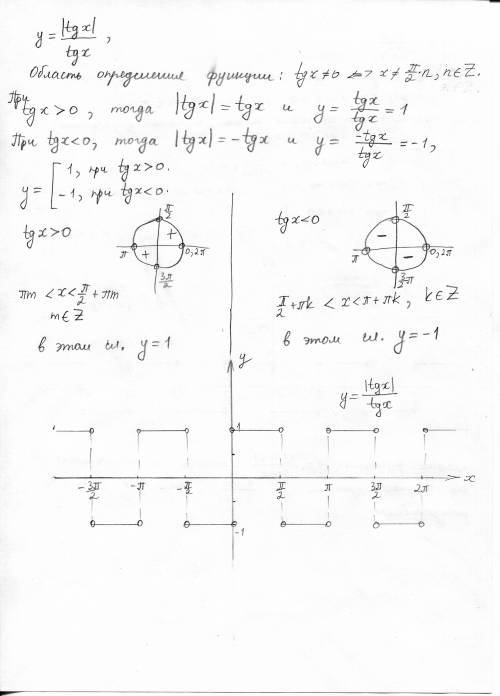 y = |tgx|/tgx ,
Область определения функции: tgx≠0 <=> x ≠ π/2·n, n∈Z.
При tgx>0, тогда |tgx| = tgx и y = tgx/tgx = 1
При tgx<0, тогда |tgx| = -tgx и y = -tgx/tgx = -1,
y = [ 1, при tgx>0.
-1, при tgx<0.
tgx>0
π/2
+
+
π
0, 2π
3π/2
tgx<0
π/2
−
−
π
0, 2π
3/2 π
πm < x < π/2 + πm
m∈Z
π/2 + πk < x < π + πk, k∈Z
в этом сл. y = 1
в этом сл. y = -1
y
y = |tgx|/tgx
1
-3π/2
-π
-π/2
π/2
π
3π/2
2π
x
-1